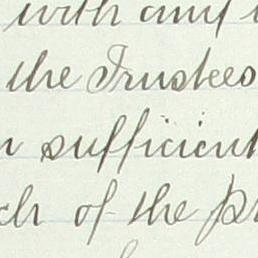 with any
the Trustees
sufficient
of the